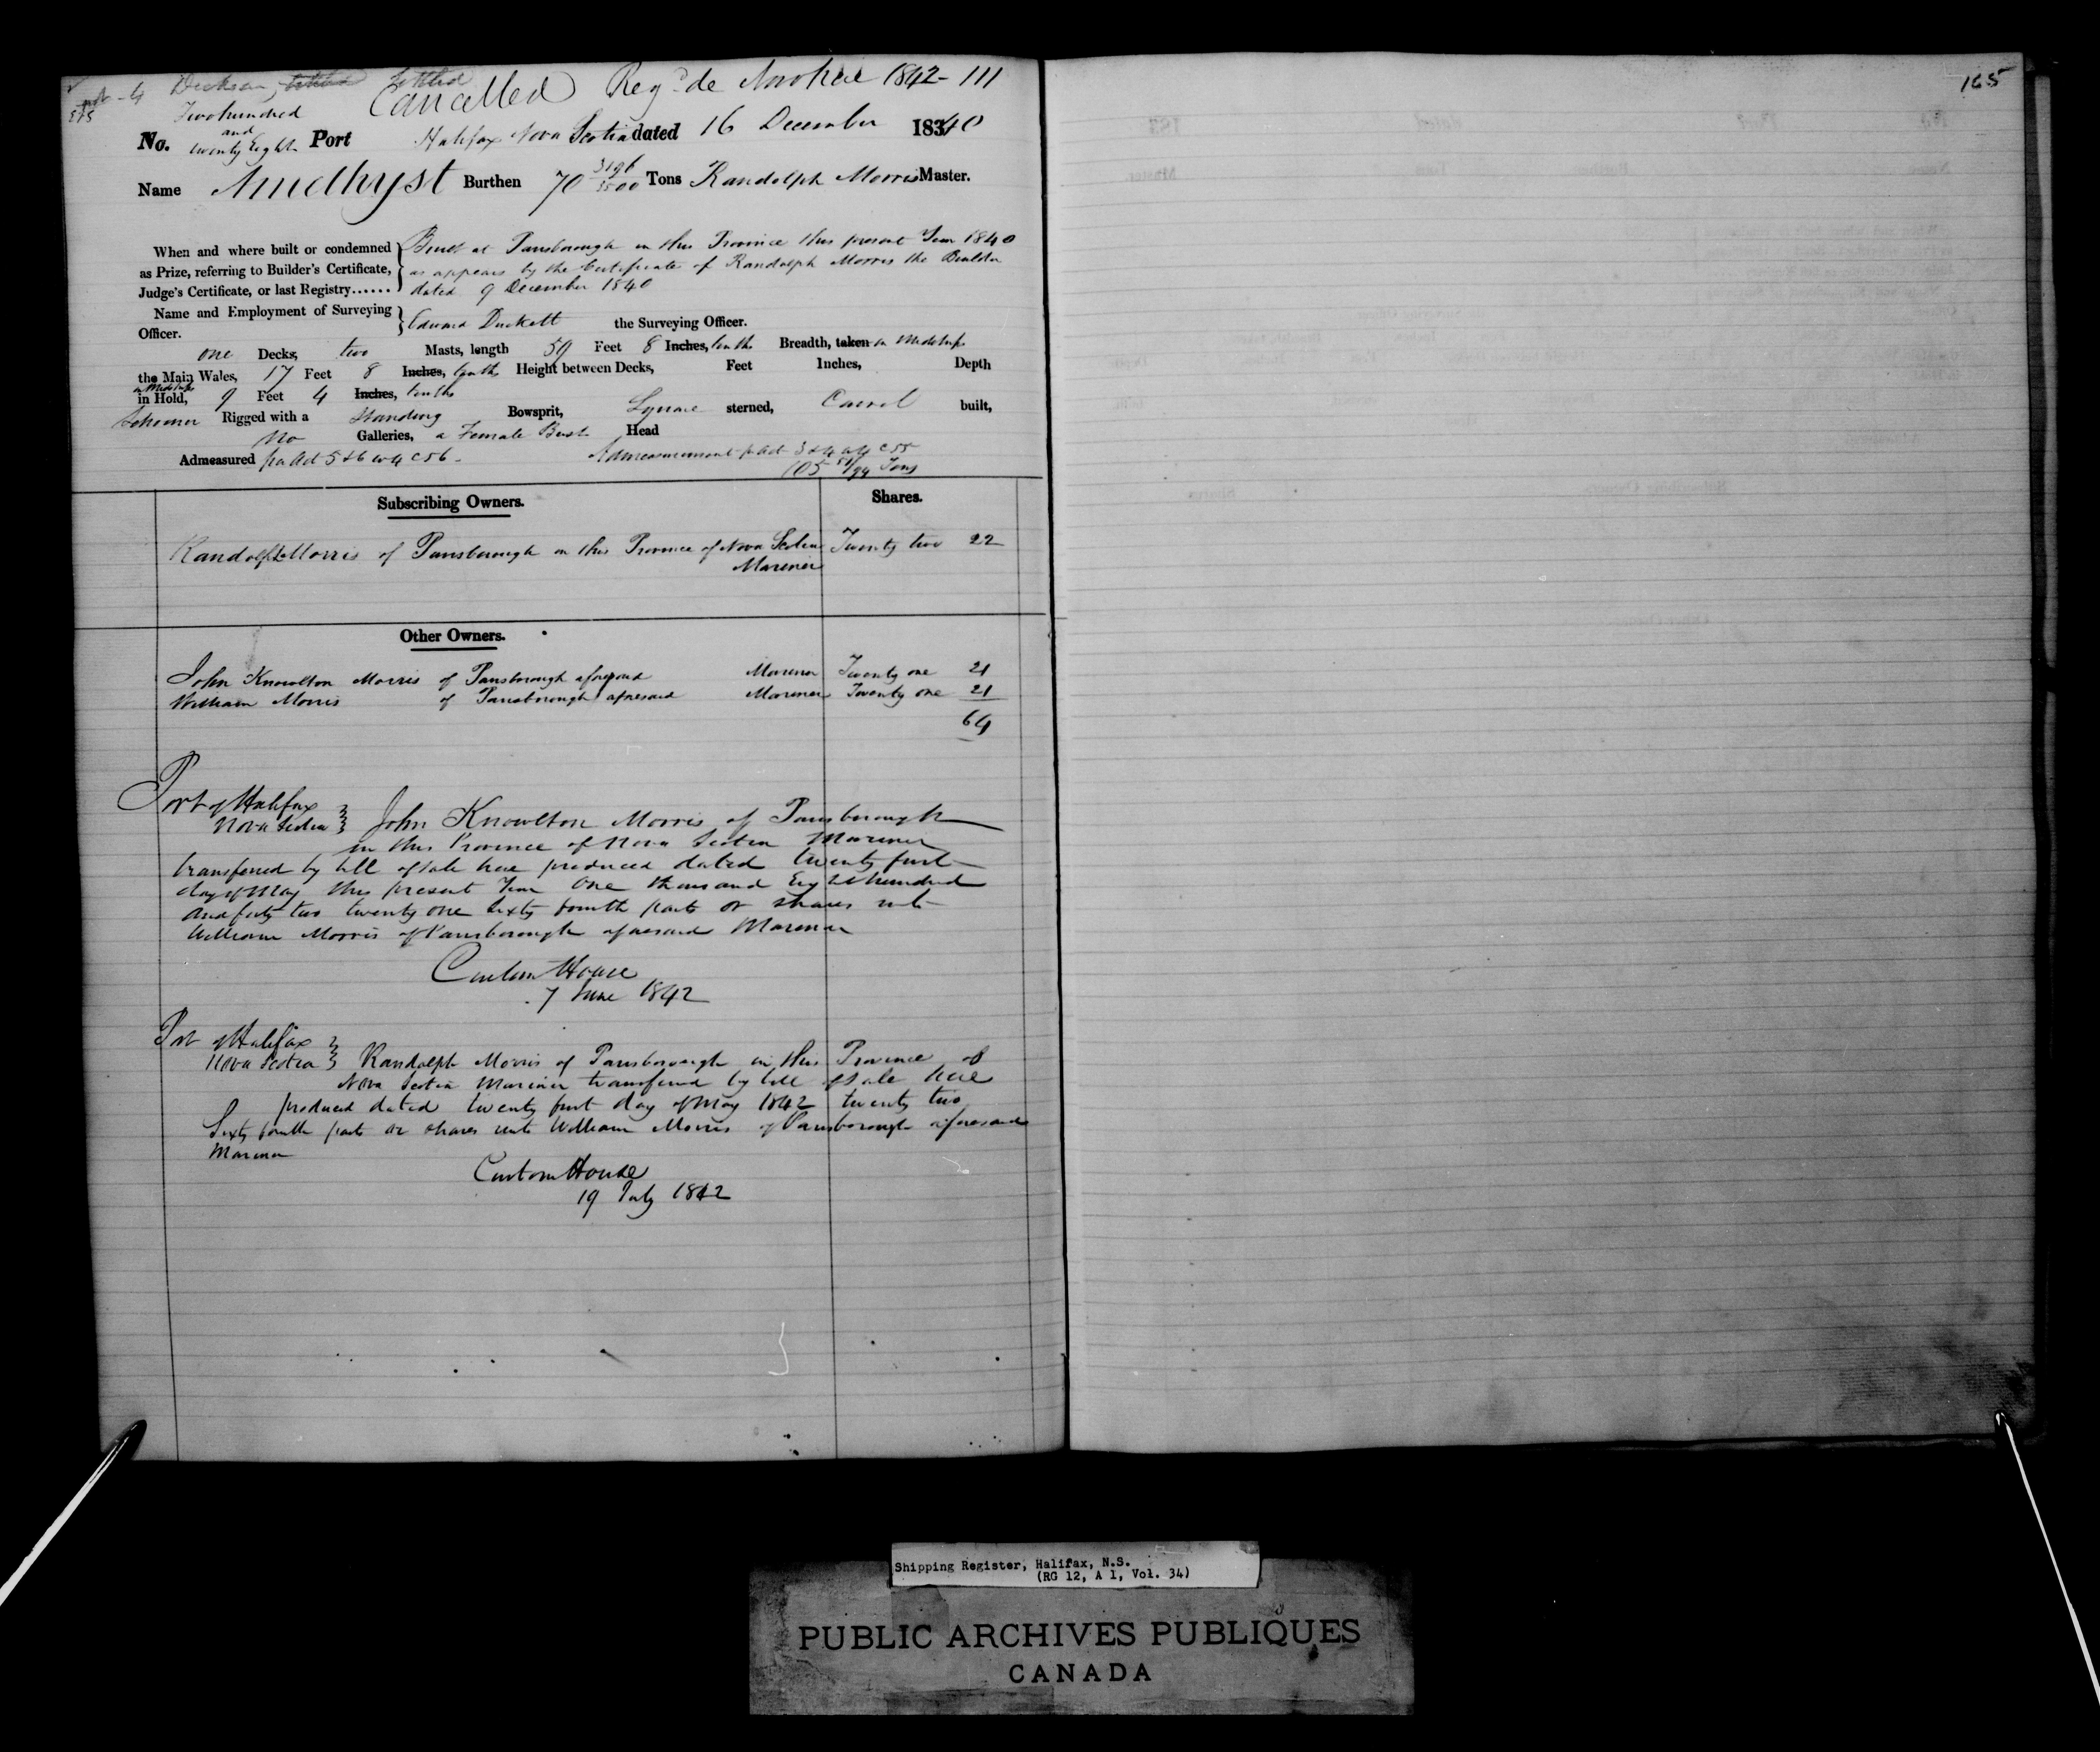 Cancelled Reg. de Novo hac 1842 - 111
165
Two hundred
and
No. twenty Eight Port Halifax Nova Scotia dated 16 December 1840
Name Amethyst Burthen 70 Tons Randolph Morris Master.
When and where built or condemned
as Prize, referring to Builder's Certificate,
Judge's Certificate, or last Registry......
Built at Parrsborough in this Province this present Year 1840
as appears by the Certificate of Randolph Morris the Builder
dated 9 December 1840
Name and Employment of Surveying
Officer.
Edward Duckett the Surveying Officer.
one Decks, two Masts, length 59 Feet 8 Inches, tenths Breadth, taken in Midships
the Main Wales, 17 Feet 8 Inches, tenths Height between Decks, Feet Inches, Depth
in Midships
in Hold, 9 Feet 4 Inches, tenths
Schooner Rigged with a Standing Bowsprit, Square sterned, Carvel built,
No Galleries, a Female Bust Head
Admeasured pr Act 5 & 6 W 4 C 56 - Admeasurement pr Act 3 & 4 W 4 C 55
105 Tons
Subscribing Owners. Shares.
Randolph Morris of Parrsborough in this Province of Nova Scotia Twenty two 22
Mariner
Other Owners.
John Knowlton Morris of Parrsborough aforesaid Mariner Twenty one 21
William Morris of Parrsborough aforesaid Mariner Twenty one 21
64
Port of Halifax
Nova Scotia } John Knowlton Morris of Parrsborough
in this Province of Nova Scotia Mariner
transferred by bill of sale here produced dated twenty first
day of May this present Year One thousand Eight hundred
and forty two twenty one Sixty fourth parts or shares unto
William Morris of Parrsborough aforesaid Mariner
Custom House
7 June 1842
Port of Halifax
Nova Scotia } Randolph Morris of Parrsborough in this Province of
Nova Scotia Mariner transferred by bill of sale here
produced dated twenty first day of May 1842 twenty two
Sixty fourth parts or shares unto William Morris of Parrsborough aforesaid
Mariner
Custom House
19 July 1842
Shipping Register, Halifax, N.S.
(RG 12, A 1, Vol. 34)
PUBLIC ARCHIVES PUBLIQUES
CANADA